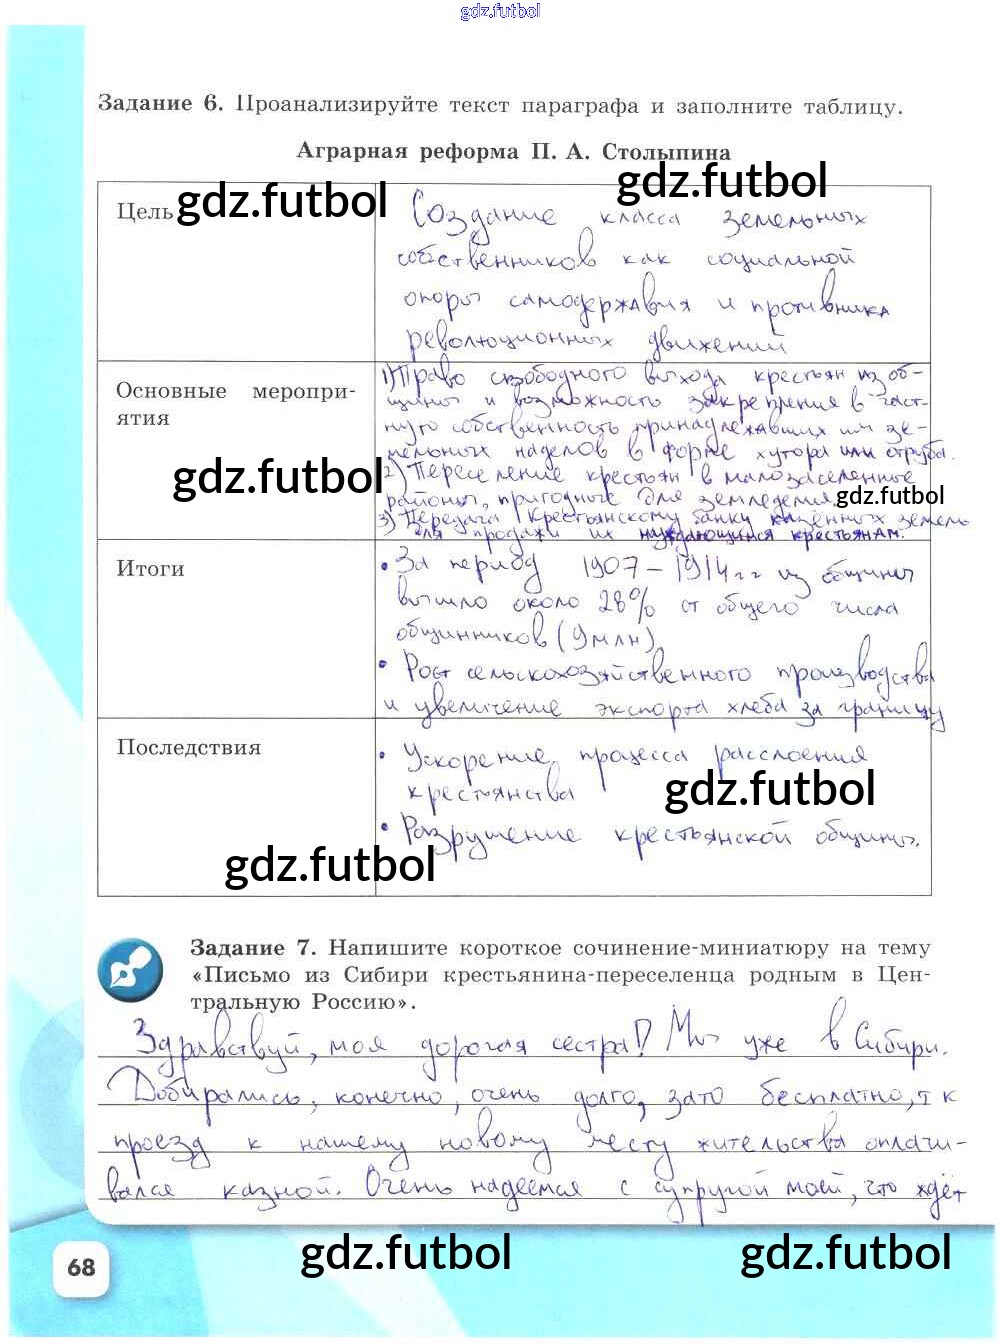 gdz.futbol
Задание 6. Проанализируйте текст параграфа и заполните таблицу.
Аграрная реформа П. А. Столыпина
gdz.futbol
Цель
gdz.futbol
Создание класса земельных
собственников как социальной
опоры самодержавия и противника
революционных движений
Основные меропри-
ятия
1) Право свободного выхода крестьян из об-
щины и возможность закрепления в част-
ную собственность принадлежавших им зе-
мельных наделов в форме хутора или отруба.
2) Переселение крестьян в малозаселенные
районы, пригодные для земледелия
3) Передача Крестьянскому банку казённых земель
для продажи их нуждающимся крестьянам.
gdz.futbol
gdz.futbol
Итоги
• За период 1907 – 1914 гг из общины
вышло около 28% от общего числа
общинников (9 млн)
• Рост сельскохозяйственного производства
и увеличение экспорта хлеба за границу
Последствия
• Ускорение процесса расслоения
крестьянства
• Разрушение крестьянской общины.
gdz.futbol
gdz.futbol
Задание 7. Напишите короткое сочинение-миниатюру на тему
«Письмо из Сибири крестьянина-переселенца родным в Цен-
тральную Россию».
Здравствуй, моя дорогая сестра! Мы уже в Сибири.
Добирались, конечно, очень долго, зато бесплатно, т к
проезд к нашему новому месту жительства оплачи-
вался казной. Очень надеемся с супругой моей, что ждёт
68
gdz.futbol
gdz.futbol